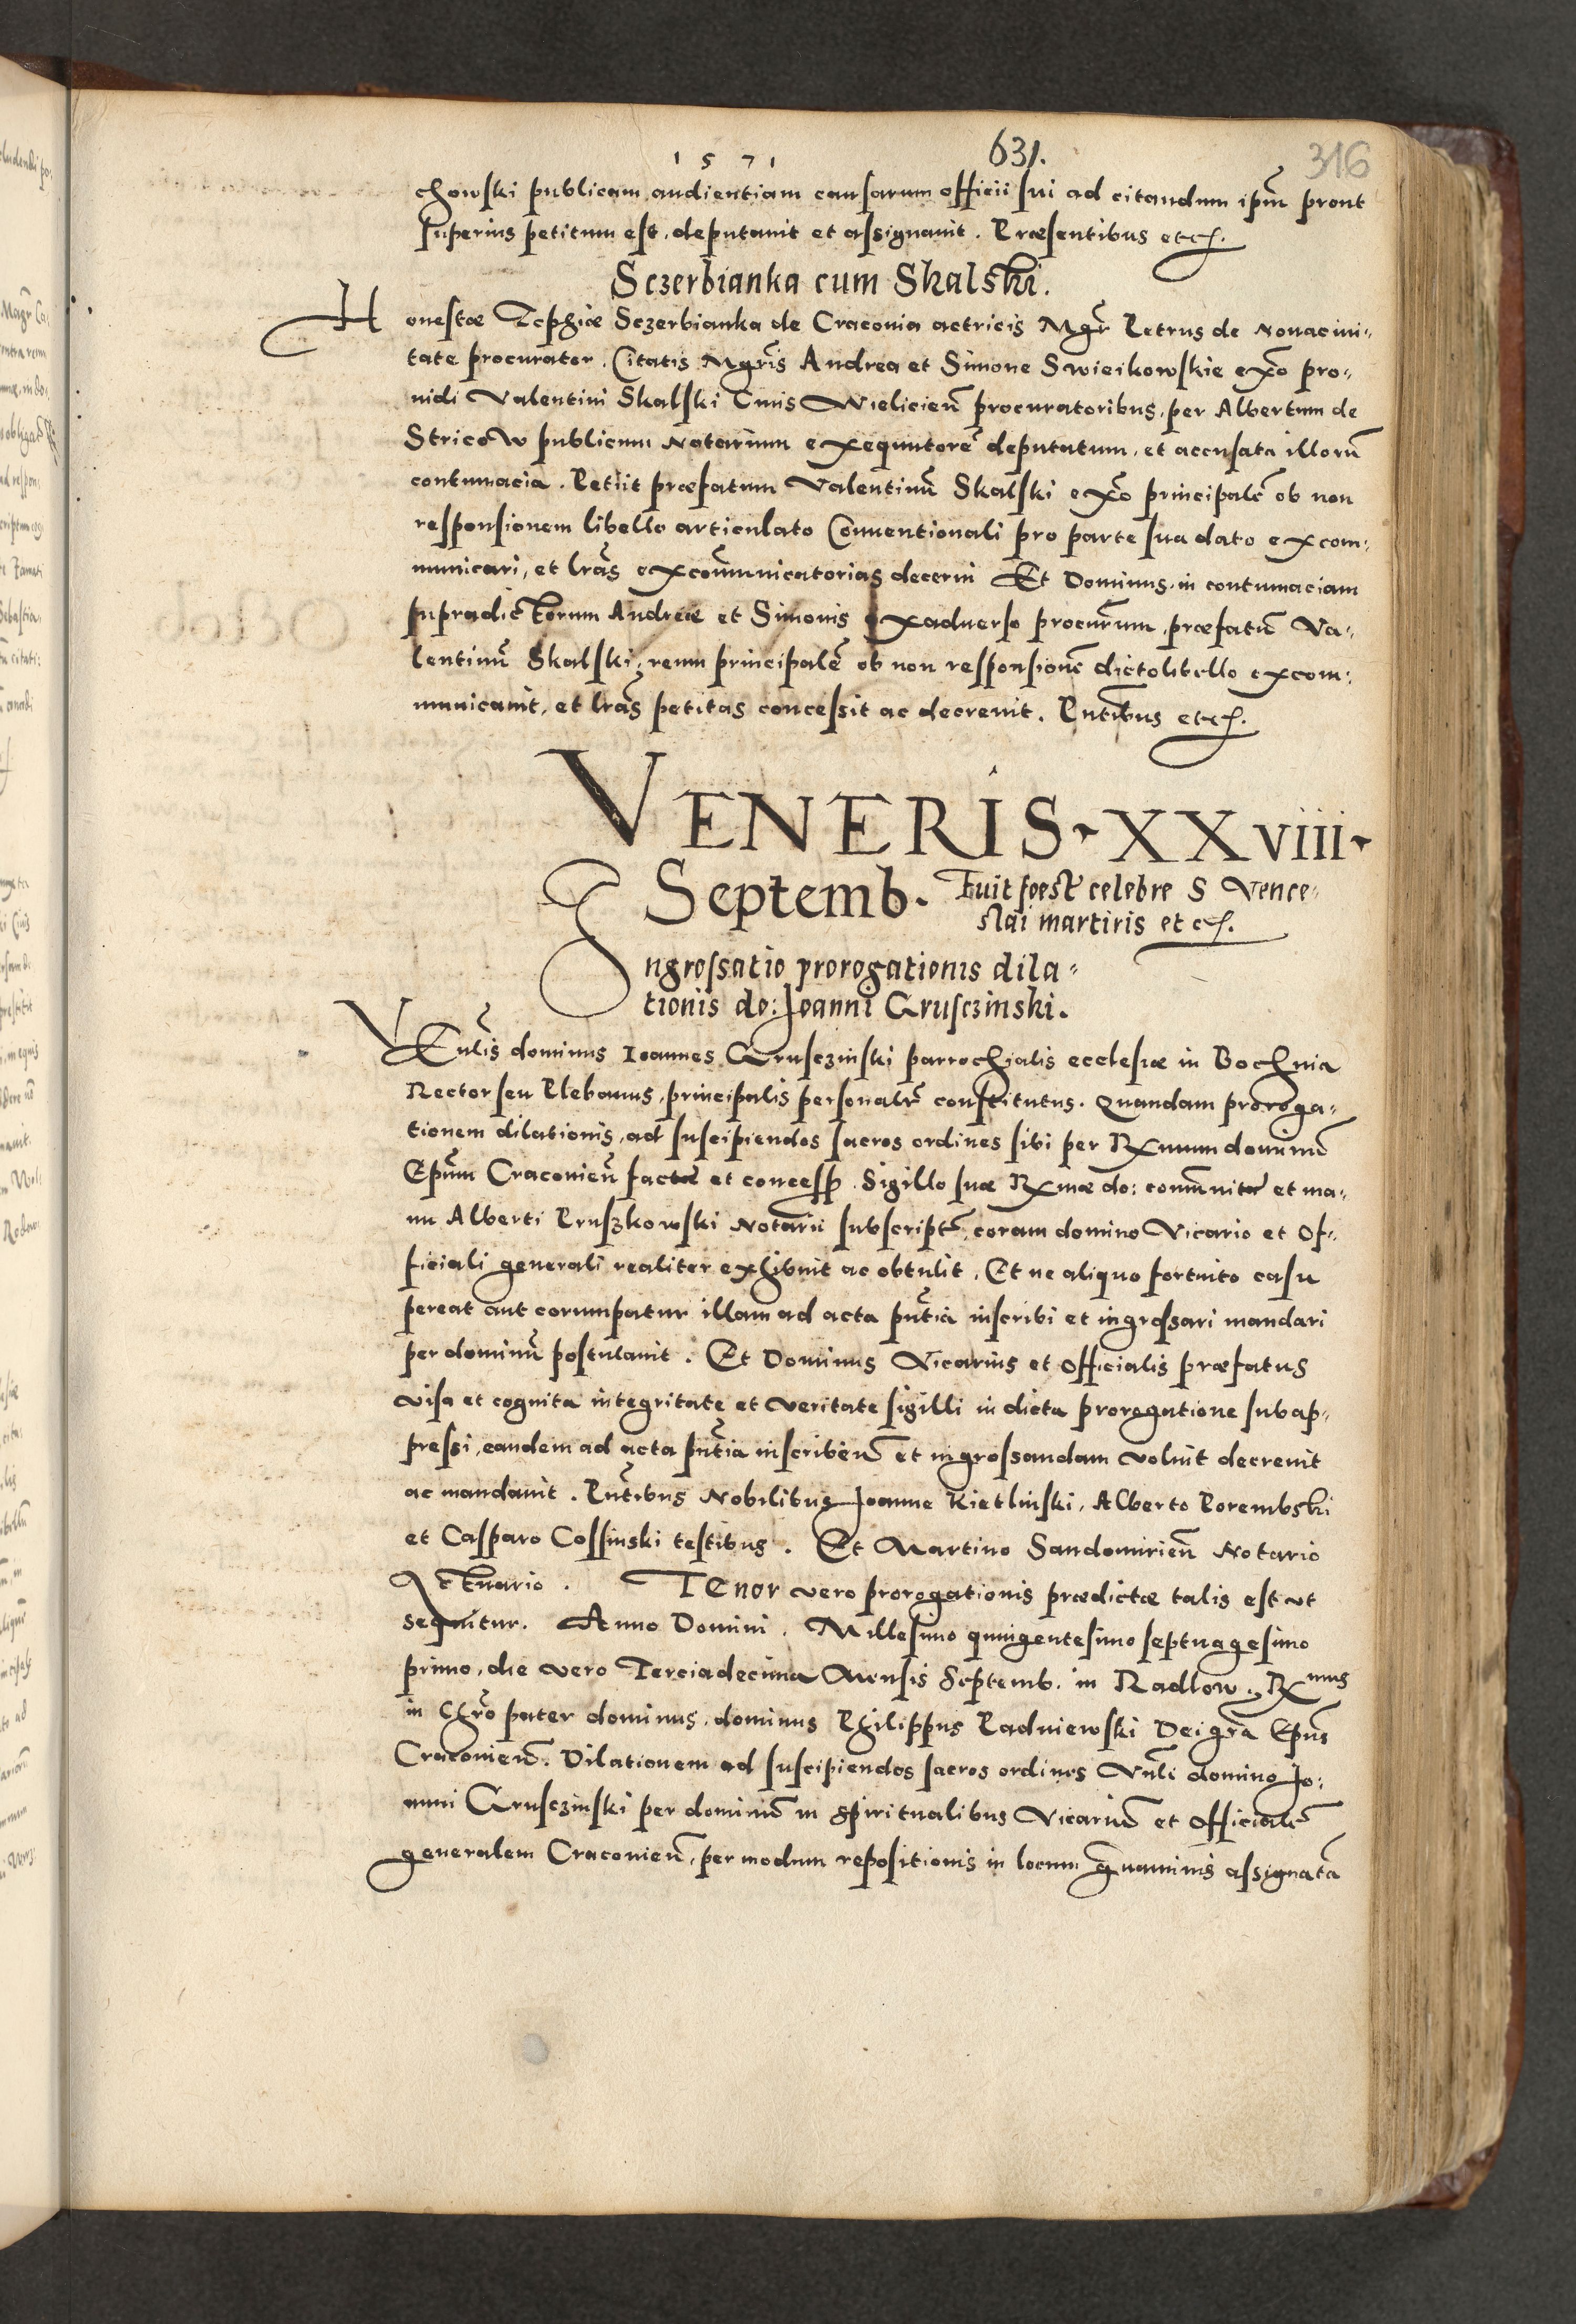 1571
631.
316
chowski publicam audientiam causarum officii sui ad citandum ipm̃ prout
superius petitum est, deputavit et assignavit. Præsentibus etc.
Sczerbianka cum Skalski.
Honestæ Zophiæ Sczerbianka de Craconia actricis Mgr̃ Petrus de Novacivi-
tate procurator. Citatis Mgr̃is Andrea et Simone Swieikowskie exõ pro-
vidi Valentini Skalski Civis Wielicieñ procuratoribus, per Albertum de
Stricow publicum Notarium exequutorẽ deputatum, et accusata illorũ
contumacia. Petiit præfatum Valentinũ Skalski exõ principalẽ ob non
responsionem libello articulato Conventionali pro parte sua dato excom-
municari, et lrãs excom̃unicatorias decerni Et Dominus in contumaciam
supradictorum Andreæ et Simonis exadverso procur̃um, præfatũ Va-
lentinũ Skalski, reum principalẽ ob non responsionẽ dicto libello excom-
municavit, et lrãs petitas concessit ac decrevit. Pñtibus etc.
VENERIS XXviii
Septemb. Fuit foest̃ celebre S Vence-
slai martiris etc.
Ingrossatio prorogationis dila-
tionis do: Joanni Gruszinski.
VEnl̃is dominus Ioannes Grusczinski parrochialis ecclesiæ in Bochnia
Rector seu Plebanus, principalis personalr̃ constitutus. Quandam proroga-
tionem dilationis, ad suscipiendos sacros ordines sibi per Rxmum dominũ
Epũm Craconieñ factæ et concess. Sigillo suæ Rxmæ do: com̃unitæ et ma-
nu Alberti Pruszkowski Notarii subscriptæ, coram domino Vicario et Of-
ficiali generali realiter exhibuit ac obtulit. Et ne aliquo fortuito casu
pereat aut corrumpatur illam ad acta pñtia inscribi et ingrossari mandari
per dominũ postulavit. Et Dominus Vicarius et Officialis præfatus
visa et cognita integritate et veritate sigilli in dicta prorogatione subap-
pressi, eandem ad acta pñtia inscribeñ et ingrossandam voluit decrevit
ac mandavit. Pñtibus Nobilibus Joanne Kietlinski, Alberto Porembski
et Casparo Cossinski testibus. Et Martino Sandomirieñ Notario
Actuario. TEnor vero prorogationis prædictæ talis est ut
sequitur. Anno Domini. Millesimo quingentesimo septuagesimo
primo, die vero Terciadecima Mensis Septemb. in Radlow. Rxmus
in Chrõ pater dominus, dominus Philippus Padniewski Dei grã Epũs
Craconieñ. Dilationem ad suscipiendos sacros ordines Vnl̃i domino Jo-
anni Grusczinski per dominũ in spiritualibus Vicariũ et Officialẽ
generalem Craconieñ, per modum repositionis in locum gravaminis assignatã